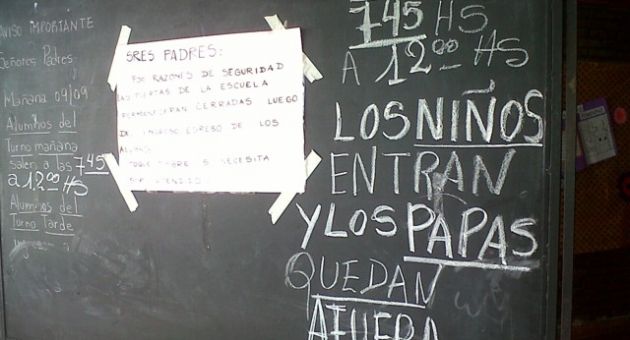 AVISO IMPORTANTE
Señores Padres
Mañana 09/09
Alumnos del
Turno mañana
salen a las 745
a 12⁰⁰ HS
Alumnos del
Turno Tarde
SRES PADRES:
POR RAZONES DE SEGURIDAD
LAS PUERTAS DE LA ESCUELA
PERMANECERAN CERRADAS LUEGO
DE INGRESO EGRESO DE LOS
TOQUE TIMBRE SI NECESITA
SER ATENDIDO
745 HS
A 12⁰⁰ HS
LOS NIÑOS
ENTRAN
Y LOS PAPAS
QUEDAN
AFUERA